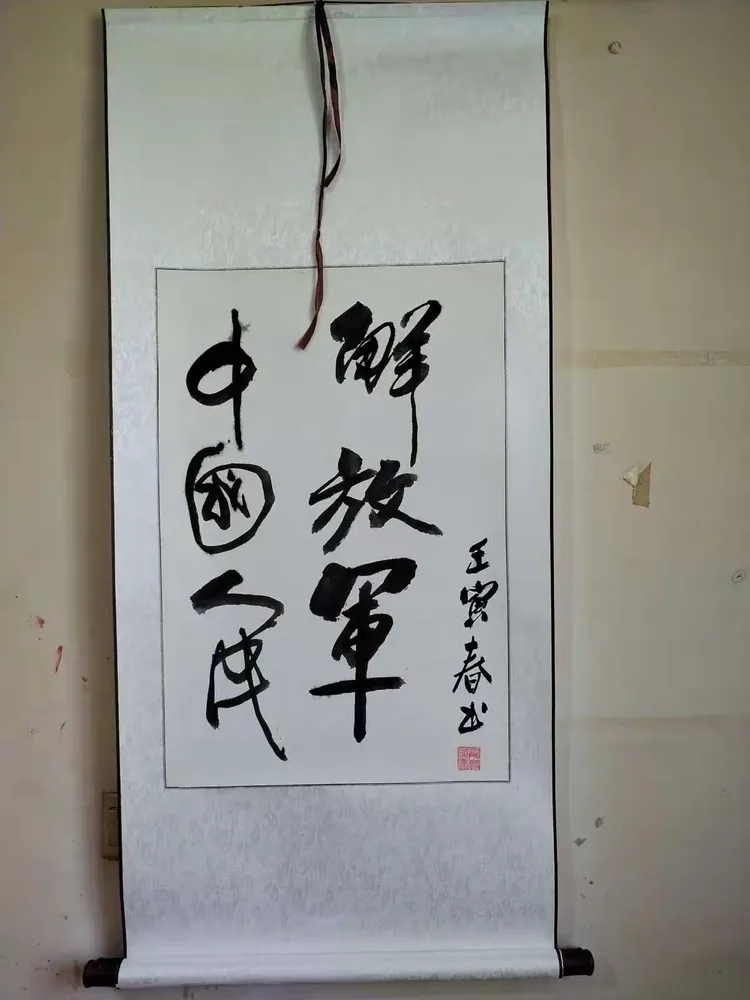 中國人民
解放軍
壬寅春书